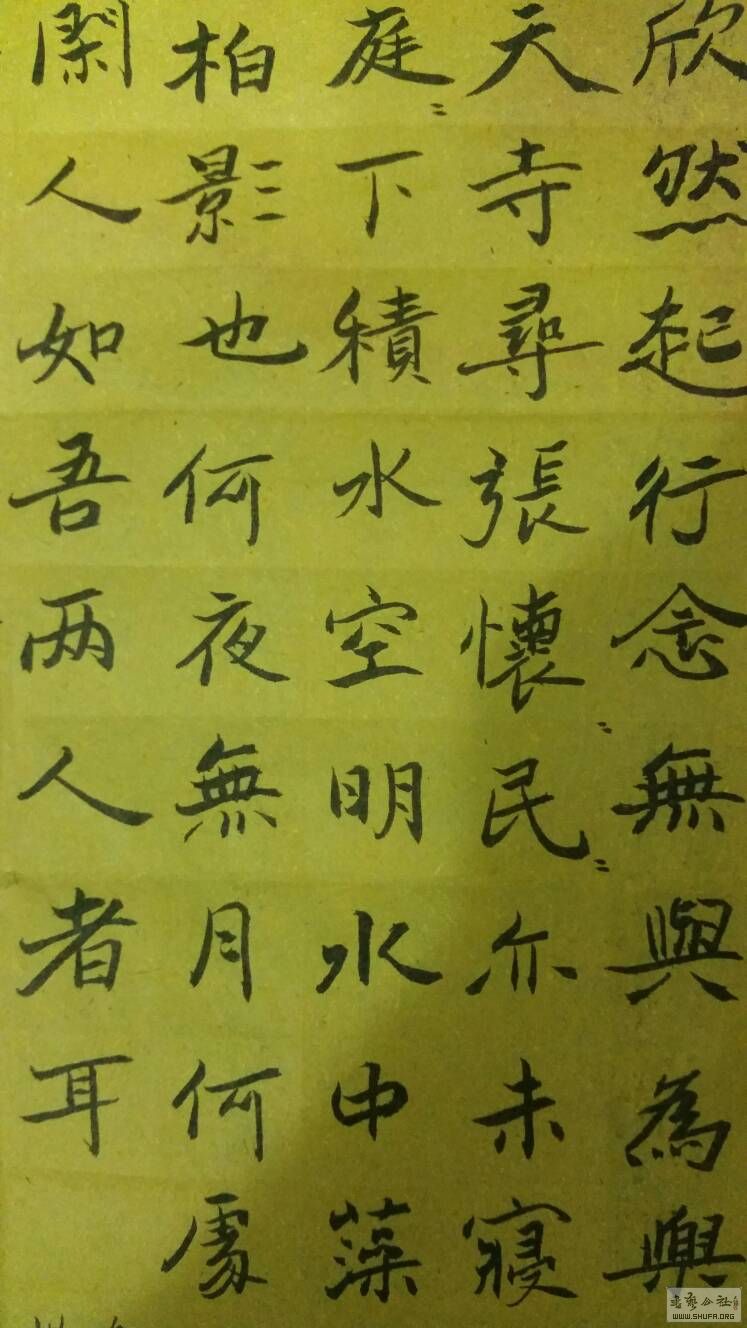 欣然起行念無與為興
天寺尋張懷〻民〻亦未寢
庭〻下積水空明水中藻
柏影也何夜無月何處
閑人如吾两人者耳
書藝公社
WWW.SHUFA.ORG